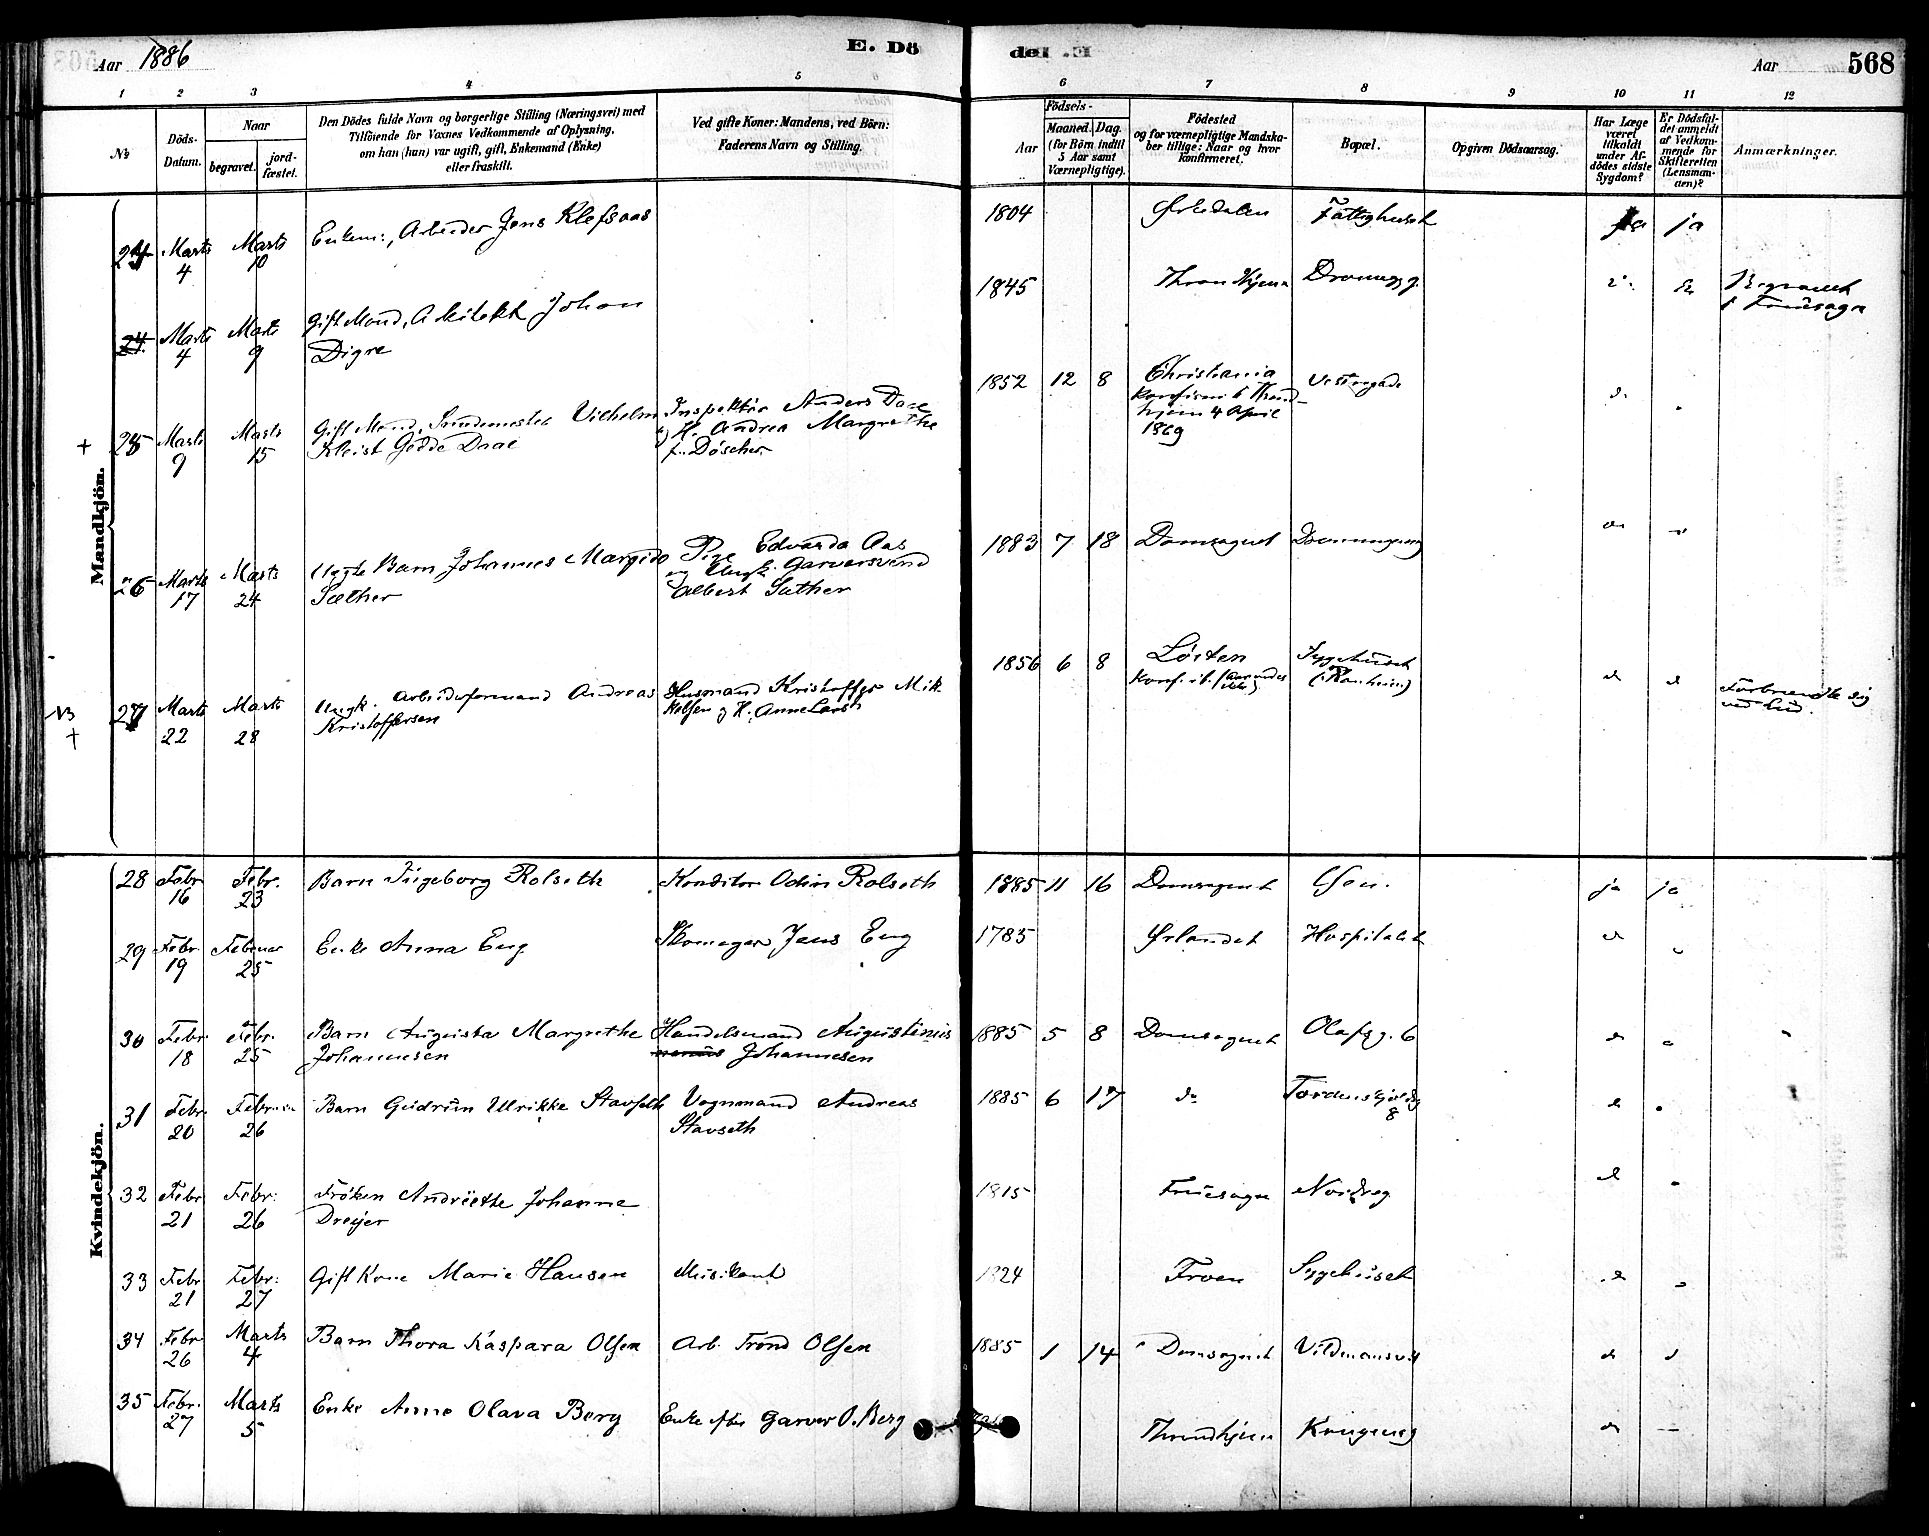 Aar 1886
E. Dö
del .E
Aar
568
1 2 3 4 5 6 7 8 9 10 11 12
No.
Döds-
Datum.
Naar
begravet.
jord-
fæstet.
Den Dödes fulde Navn og borgerlige Stilling (Næringsvei) med
Tilföiende for Voxnes Vedkommende af Oplysning,
om han (hun) var ugift, gift, Enkemand (Enke)
eller fraskilt.
Ved gifte Koner: Mandens, ved Börn:
Faderens Navn og Stilling.
Födsels-
Aar
Maaned. Dag.
(for Börn indtil
5 Aar samt
Værnepligtige).
Födested
og for værnepligtige Mandska-
ber tillige: Naar og hvor
konfirmeret.
Bopæl.
Opgiven Dödsaarsag.
Har Læge
været
tilkaldt
under Af-
dödes sidste
Sygdom?
Er Dödsfal-
det anmeldt
af Vedkom-
mende for
Skifteretten
(Lensman-
den)?
Anmærkninger.
Mandkjön.
Marts 4 Marts 10 Enkem:, Arbeider Jens Klefsaas 1804 Ørkedalen Fattighuset ja ja
24. Marts 4 Marts 9 Gift Mand, Arkitekt Johan
Digre
1845 Dronnngg. Begravet
i Fruesogn
+ 25 Marts 9 Marts 15 Gift Mand, Vilhelm
Kleist Gedde Daae
Inspektör Anders Daae
og H. Andrea Margrethe
f. Döscher.
1852 12 8 Christiania
Konfirm i Thrond-
hjem 4 April
1869
Vestregade
26 Marts 17 Marts 24 Uegte Barn Johannes Margido
Sæther
Pige Edvarda Aas
og Ungk. Garversvend
Albert Sæther
1883 7 18 Domsognet
NB + 27 Marts 22 Marts 28 Ungk. Arbeidsformand Andreas
Kristoffersen
Husmand Kristoffer Mik
kelsen og H. Anne Larsd
1856 6 8 Löiten Sygehuset
(Ranheim)
Forbrændte sig
ved Lud.
Kvindekjön.
28 Febr 16 Febr. 23 Barn Ingeborg Rolseth Konditor Odin Rolseth 1885 11 16 Domsognet Ilsen. ja ja
29 Febr. 19 Februar 25 Enke Anna Eng Skomager Jens Eng 1785 Ørlandet Hospitalet
30 Febr. 18 Febr. 25 Barn Augusta Margrethe
Johannesen
Handelsmand Augustinus
Johannesen
1885 5 8 Domsognet Olafsg. 6
31 Febr. 20 Februar 26 Barn Gudrun Ulrikke Stavseth Vognmand Andreas
Stavseth
1885 6 17 do Tordenskjoldsg
8
32 Febr 21 Febr: 26 Fröken Andriette Johanne
Dreijer
1815 Fruesogn Nordreg
33 Febr 21 Febr: 27 Gift Kone Marie Hansen Musikant 1824 Froen Sygehuset
34 Febr 26 Marts 4 Barn Thora Kaspara Olsen Arb. Trond Olsen 1885 1 14 Domsognet
35 Febr. 27 Marts 5 Enke Anne Olava Berg Enke efter Garver O. Berg Throndhjem Kongensg